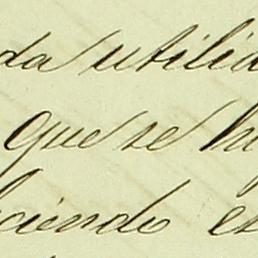 da utilid
que se h
ciendo es